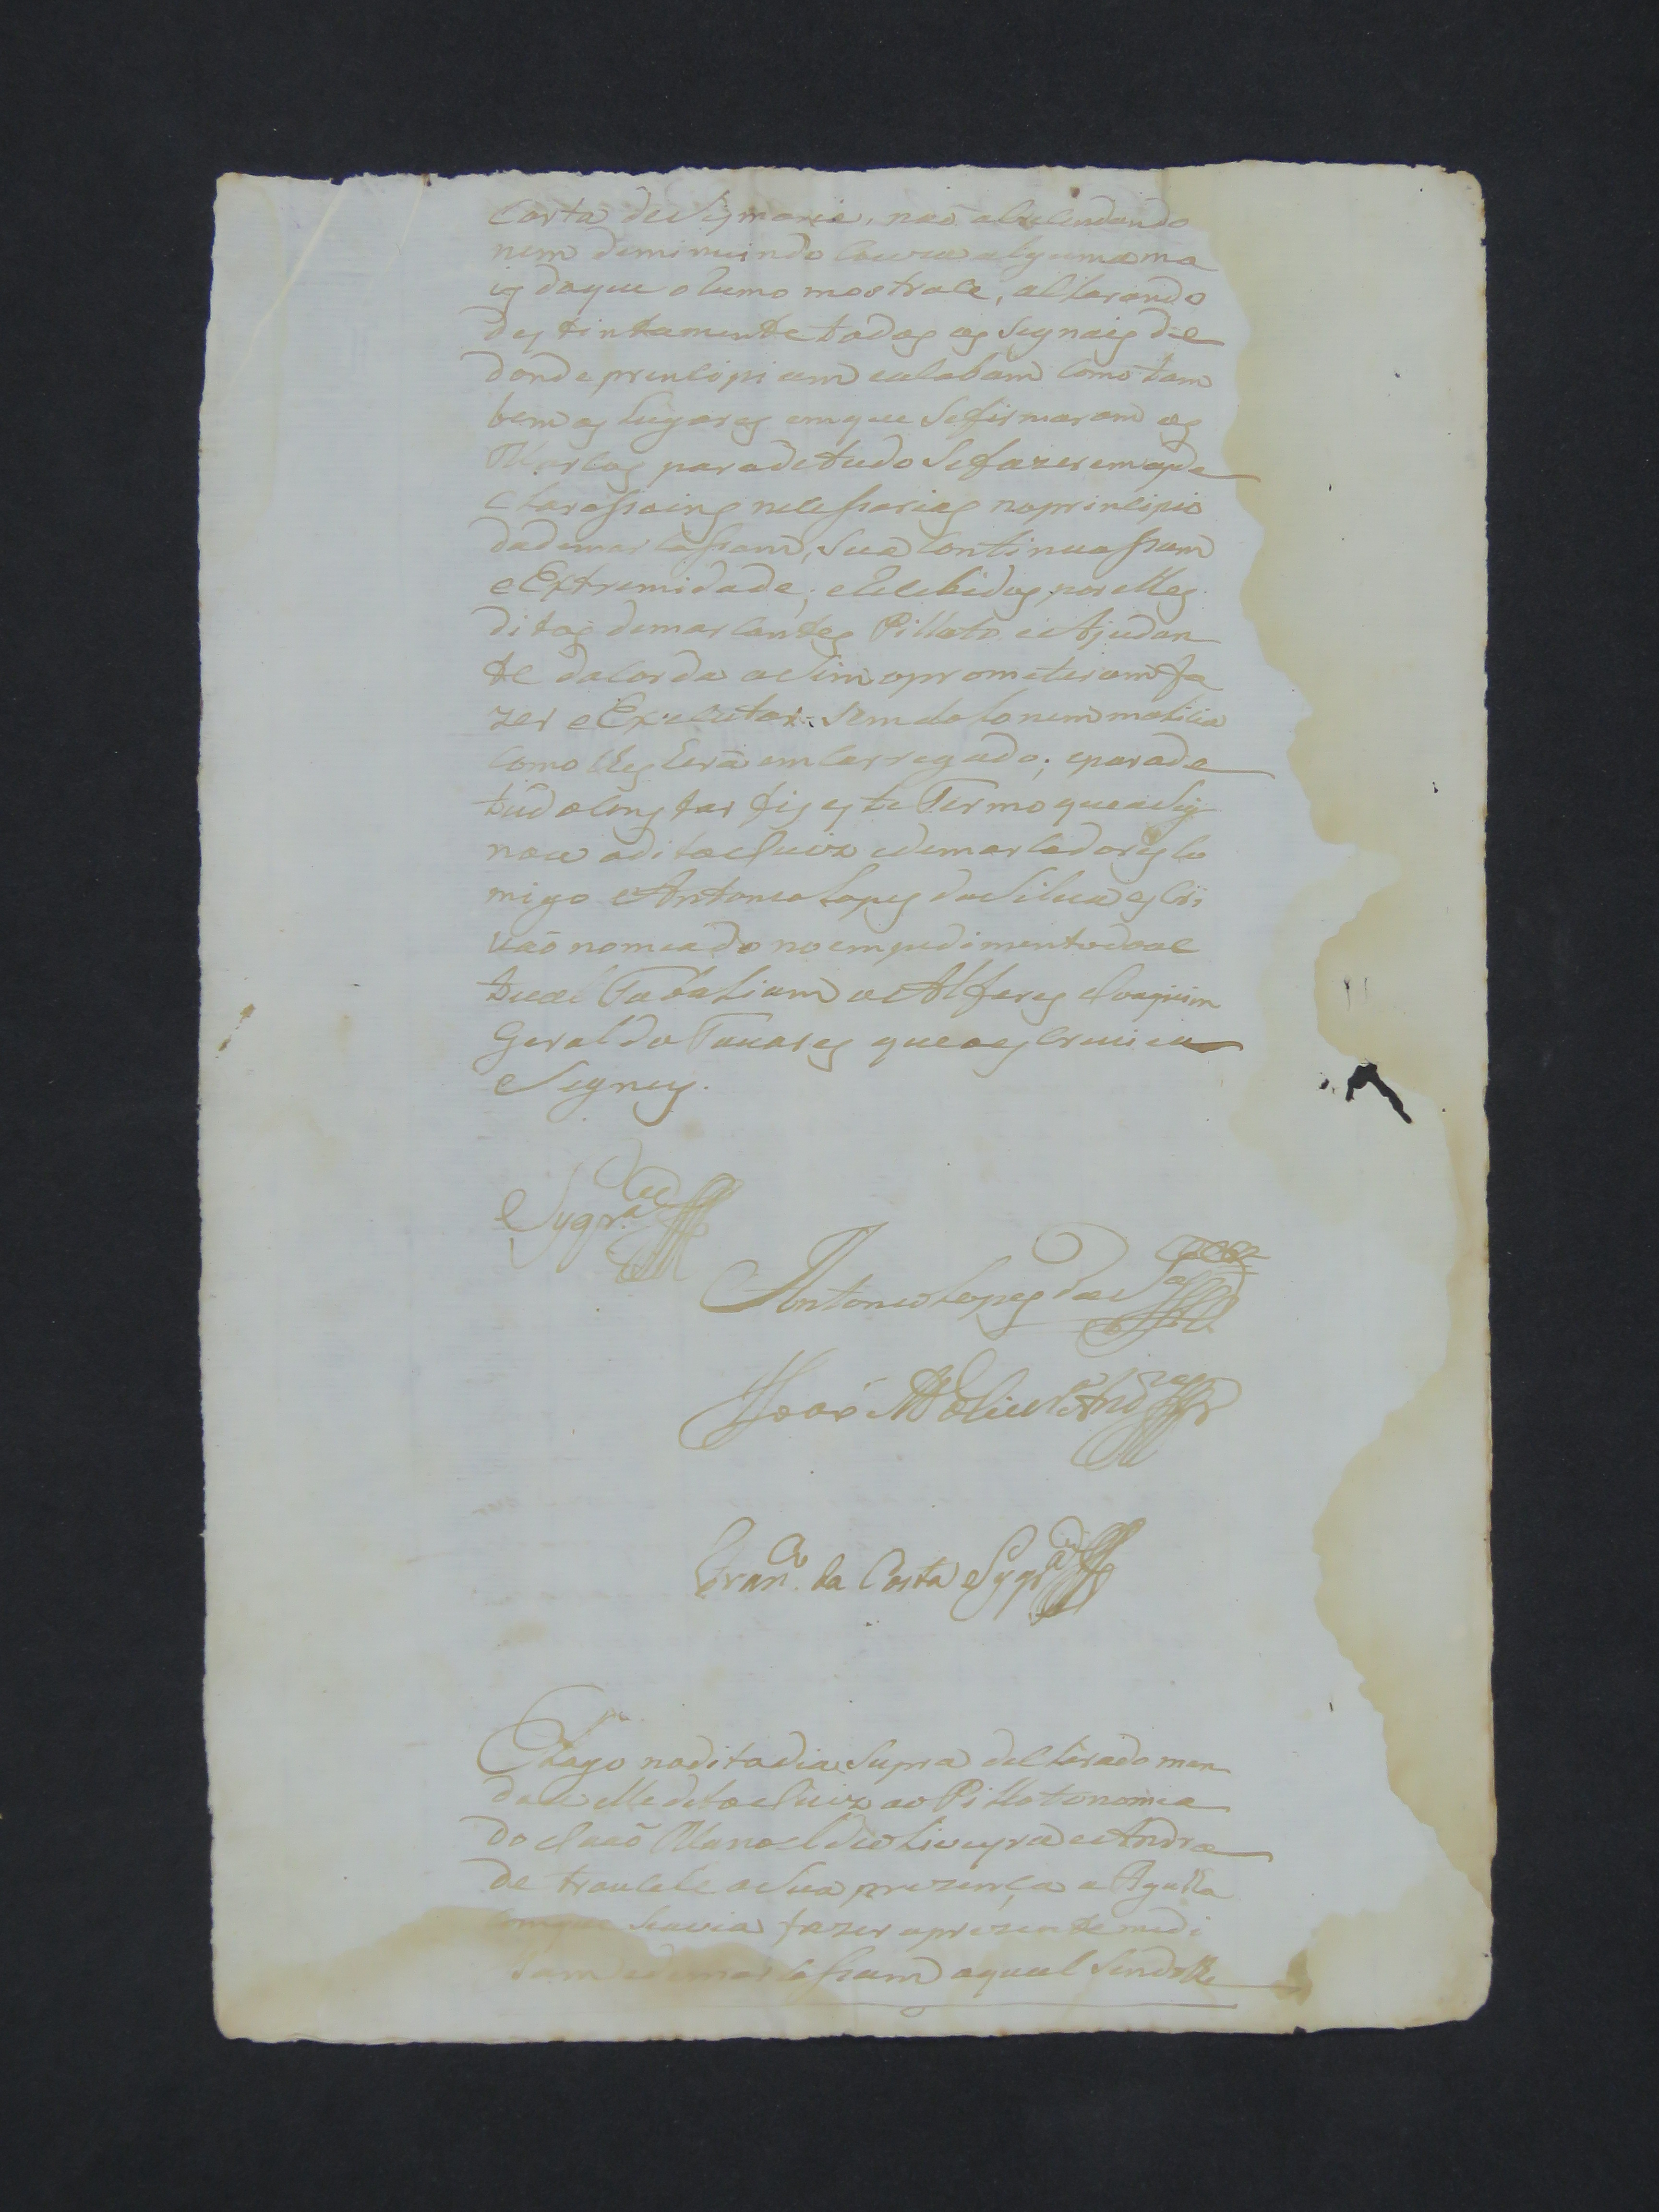 Carta de Sysmaria, naõ abesendando
nem deminuindo couza alguma ma
is doque olumo mostrace, aClarando
destintamente todos os Segnais de
donde principiam eacabam como tam
bem os lugares emque Sefirmaram os
Marcos para detudo Sefazerem as de
Clarassoins necessarias noprincipio
dademarcassam, Sua Continuassam
e Extremidade; eRecebidos por elles
ditos demarcantes Pilloto e Ajudan
te da corda aSim oprometeram fa
zer e Executar Sem dolo nem malicia
Como lhes hera emcarregado; epara de
tudo Constar fis este Termo que aSig
nou odito Juiz edemarcadores co
migo Antonio Lopes da Silva escri
vaõ nomeado no empedimento do ac
tual Tabaliam o Alferes Joaquim
Geraldo Tavares que oescrevi eu
e Signey.
Sygr.ª
Antonio Lopes da S.ª
Joaõ M.el de Oliur.ª And.e
Fran.co da Costa Sygr.ª
E logo no dito dia Supra declarado man
dou elle dito Juiz ao Pilloto nomea
do Joaõ Manoel de oLiveyra e Andra
de troucece a Sua prezença a Agulha
comque Seavia fazer aprezente medi
sam edemarcassam aqual Sendolhe